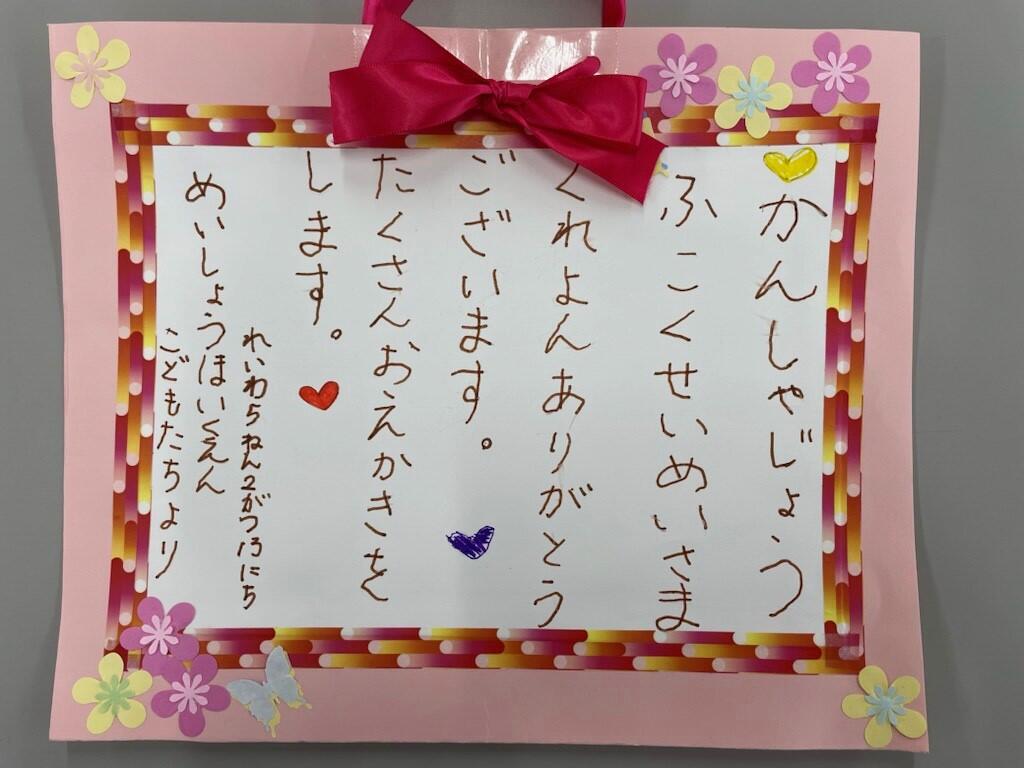 かんしゃじょう
ふこくせいめいさま
くれよんありがとう
ございます。
たくさんおえかきを
します。
れいわ5ねん2がつ13にち
めいしょうほいくえん
こどもたちより